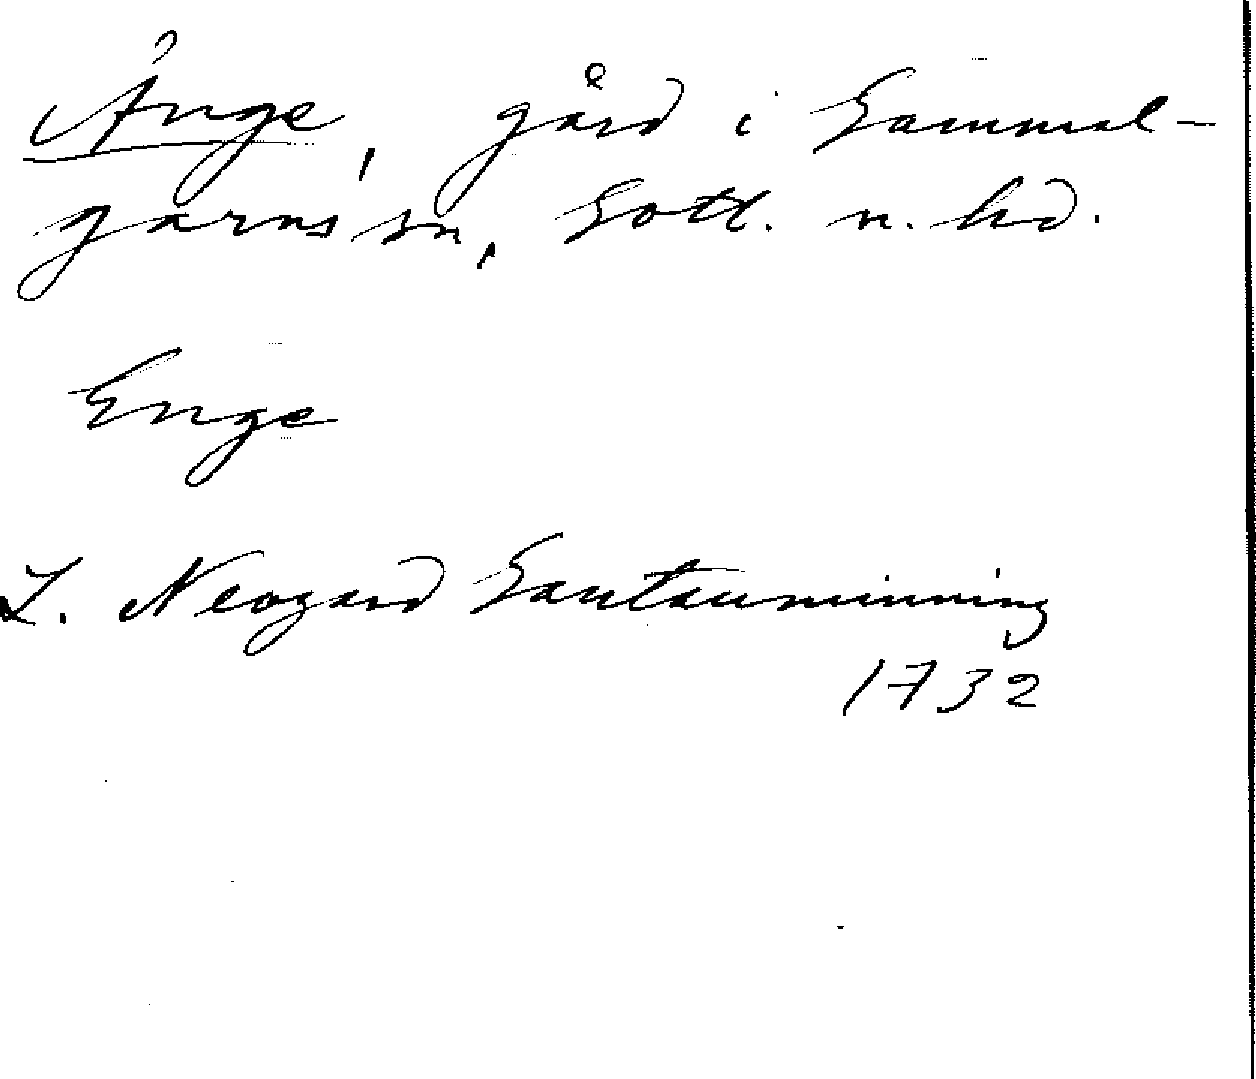 Änge, gård i Gammal-
garns sn, Gotl. n. hd.
Enge
L. Neogard Gautauminning
1732